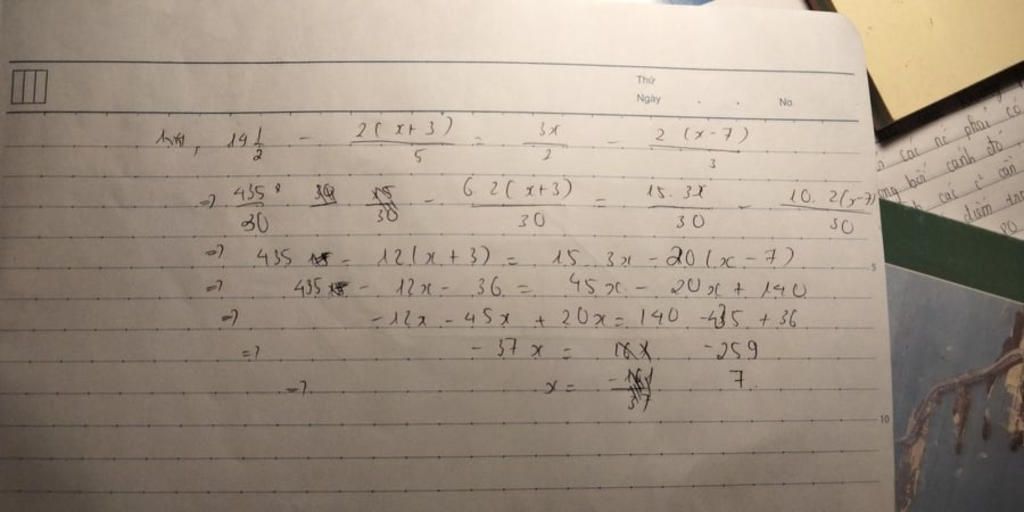 Thứ
Ngày . . No.
14 1/2 - 2(x+3)/5 = 3x/2 - 2(x-7)/3
=> 435/30 - 6.2(x+3)/30 = 15.3x/30 - 10.2(x-7)/30
=> 435 - 12(x+3) = 15 3x - 20(x-7)
5
=> 435 - 12x - 36 = 45x - 20x + 140
=> -12x - 45x + 20x = 140 - 435 + 36
=> -37x = -259
=> x = 7
10
các nc phải có
bối cảnh đó
các
cần